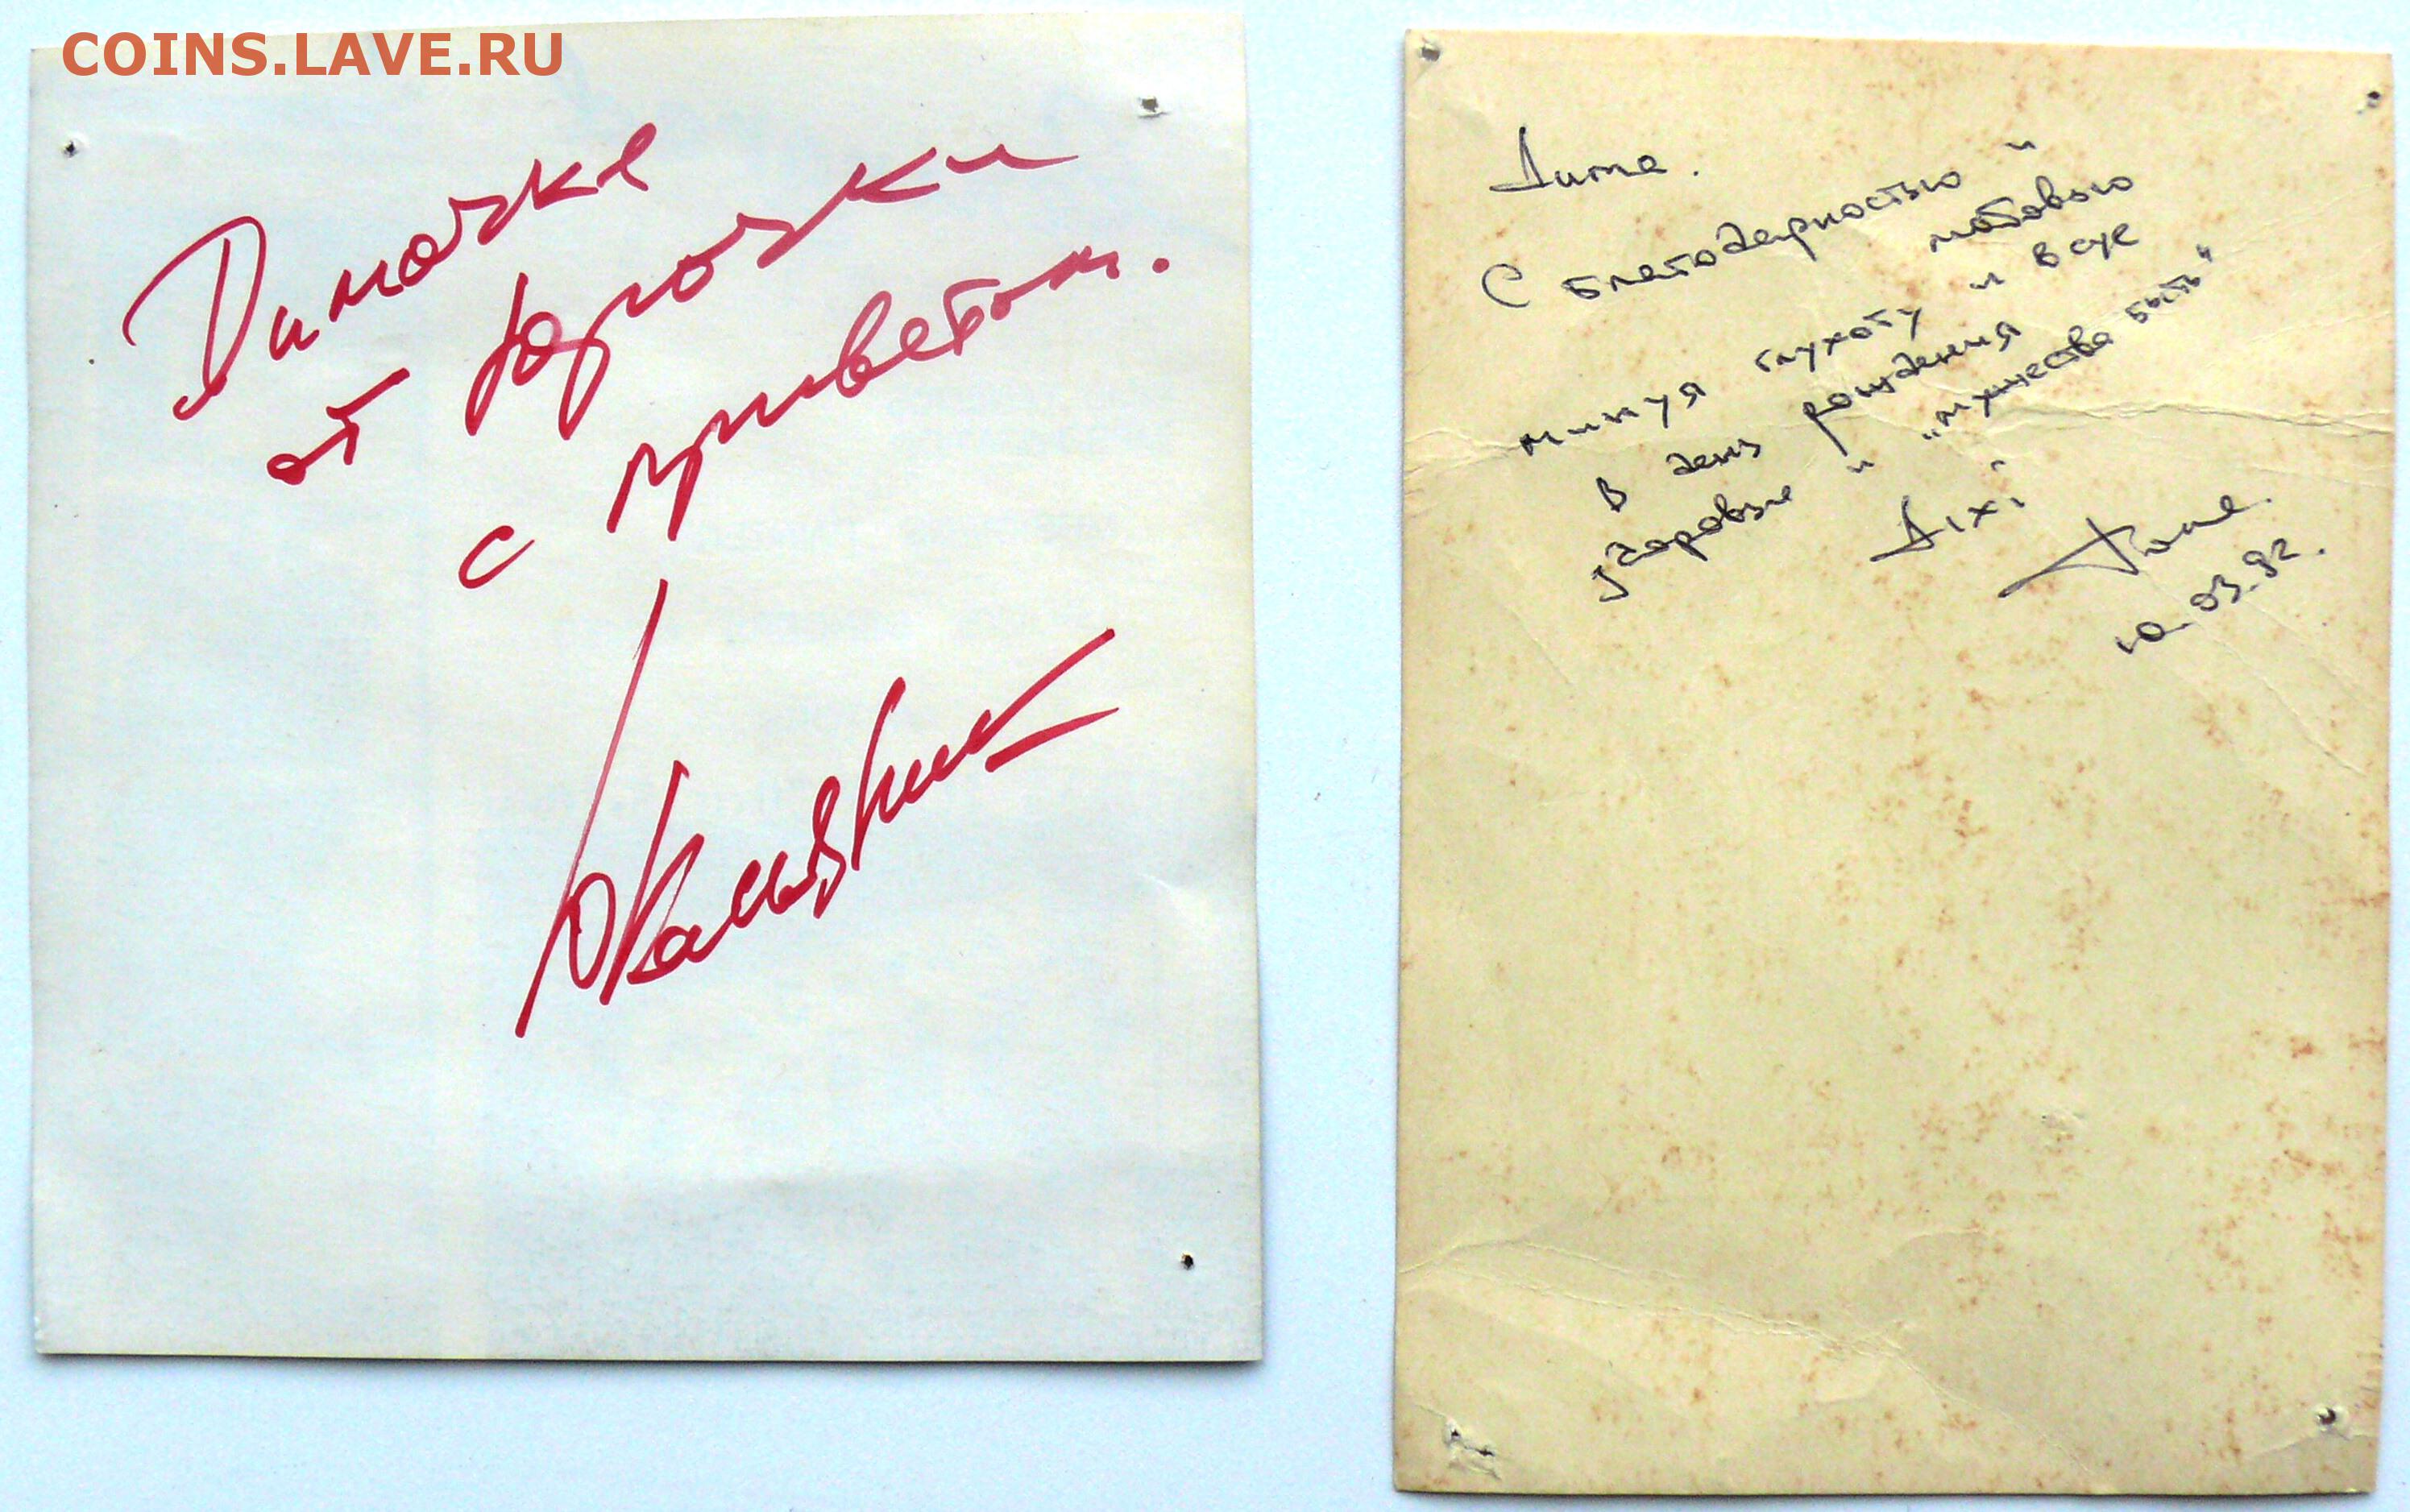 COINS.LAVE.RU
Димочке
от Юрочки
с приветом.
Дима.
С благодарностью и
любовью
минуя глухоту и в сце
в день рождения
здоровье и „мужества быть"
Діхі
10.03.92.